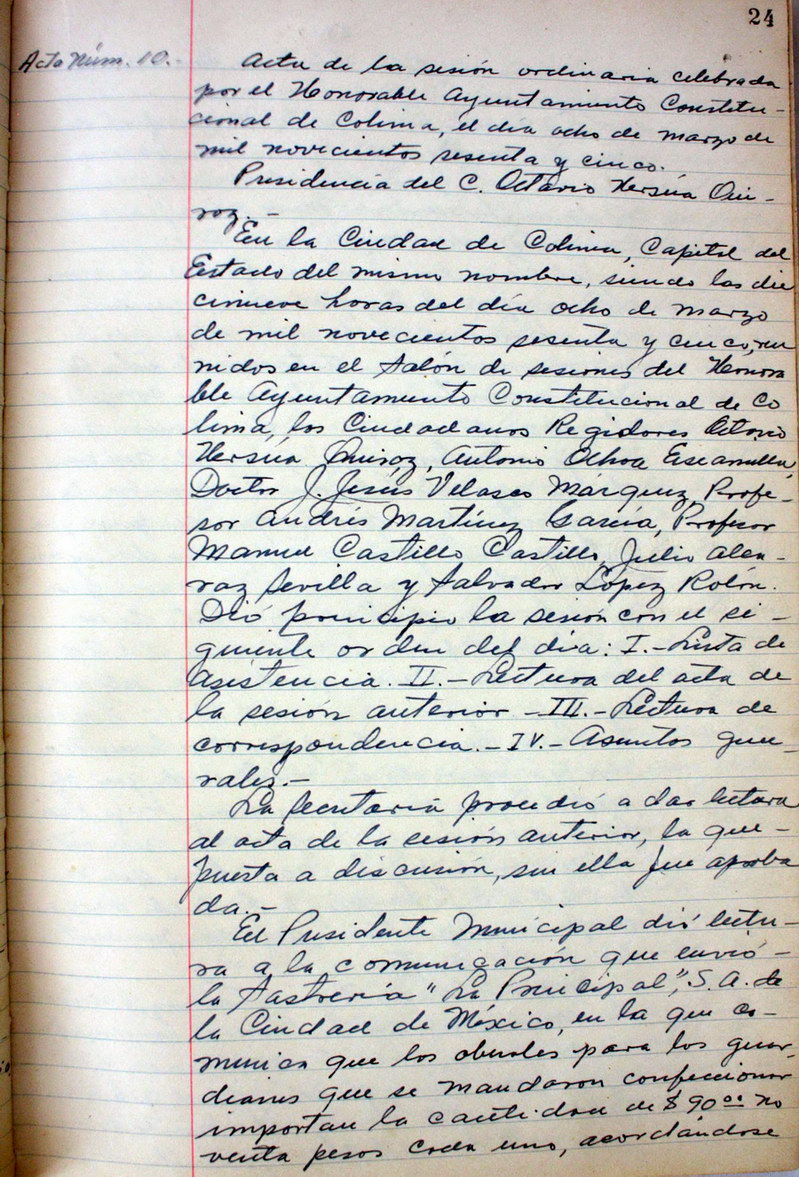 24
Acta Núm. 10.-
Acta de la sesión ordinaria celebrada
por el Honorable Ayuntamiento Constitu-
cional de Colima, el día ocho de marzo de
mil novecientos sesenta y cinco.
Presidencia del C. Octavio Versúa Qui-
roz.-
En la Ciudad de Colima, Capital del
Estado del mismo nombre, siendo las die
cinueve horas del día ocho de marzo
de mil novecientos sesenta y cinco, reu
nidos en el Salón de sesiones del Honora
ble Ayuntamiento Constitucional de Co
lima, los Ciudadanos Regidores Octavio
Versúa Quiroz, Antonio Ochoa Escamilla,
Doctor J. Jesús Velasco Márquez, Profe-
sor Andrés Martínez García, Profesor
Manuel Castillo Castillo, Julio Alca-
raz Sevilla y Salvador López Rolón.
Dió principio la sesión con el si-
guiente orden del día: I.- Lista de
asistencia. II.- Lectura del acta de
la sesión anterior - III.- Lectura de
correspondencia. - IV.- Asuntos gene-
rales.-
La Secretaría procedió a dar lectura
al acta de la sesión anterior, la que -
puesta a discusión, sin ella fue aproba
da.-
El Presidente Municipal dió lectu-
ra a la comunicación que envió -
la Sastrería "La Principal", S. A. de
la Ciudad de México, en la que co-
munica que los overoles para los guar-
dianes que se mandaron confeccionar
importan la cantidad de $90.00 no
venta pesos cada uno, acordándose